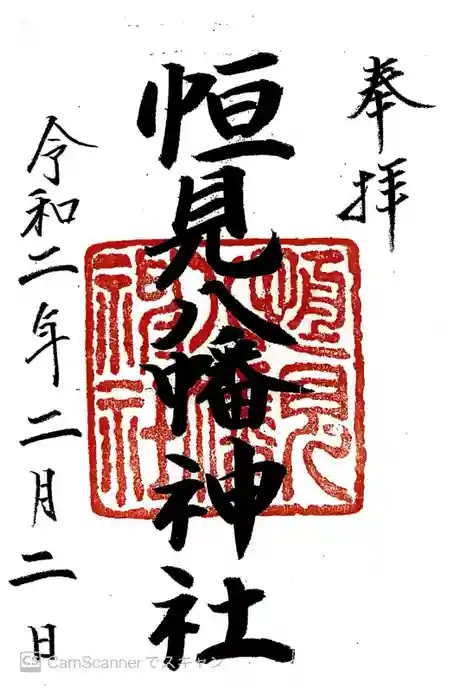 奉拝
恒見八幡神社
令和二年二月二日
恒見
八幡
神社
CS CamScannerでスキャン